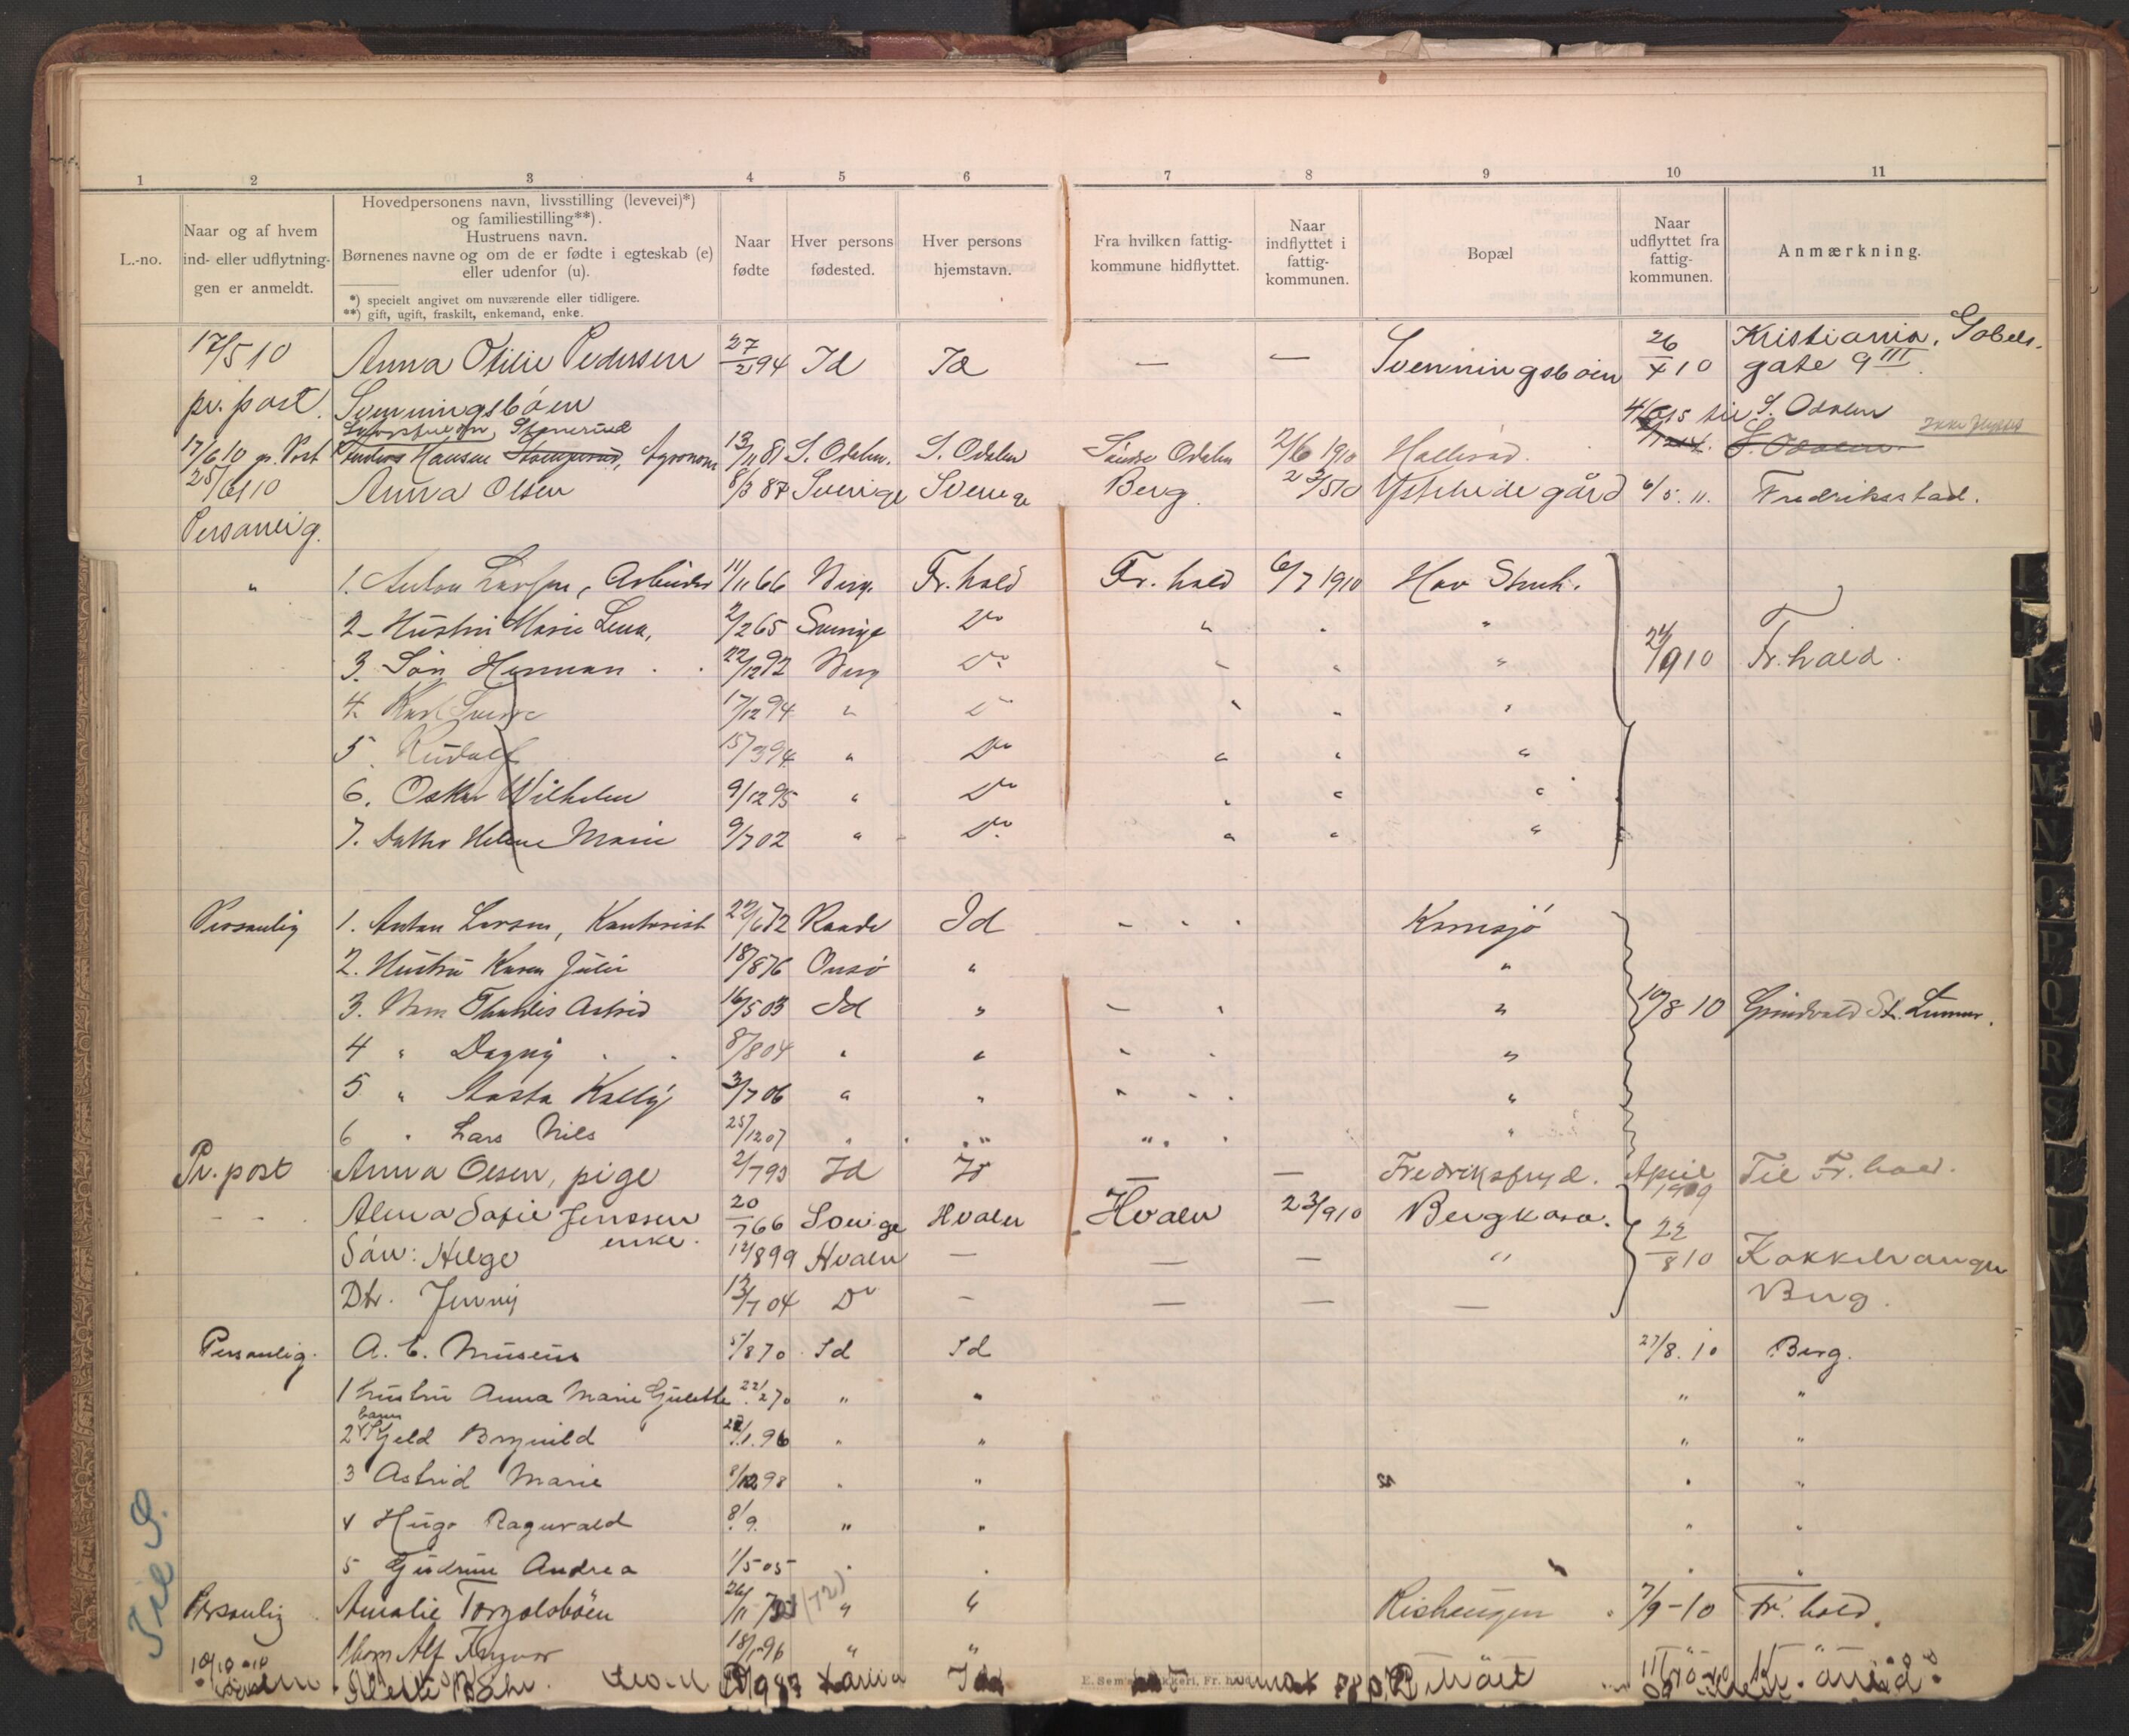 1 2 3 4 5 6 7 8 9 10 11
L.-no.
Naar og af hvem
ind- eller udflytning-
gen er anmeldt.
Hovedpersonens navn, livsstilling (levevei)*)
og familiestilling**).
Hustruens navn.
Børnenes navne og om de er fødte i egteskab (e)
eller udenfor (u).
*) specielt angivet om nuværende eller tidligere.
**) gift, ugift, fraskilt, enkemand, enke.
Naar
fødte
Hver persons
fødested.
Hver persons
hjemstavn.
Fra hvilken fattig-
kommune hidflyttet.
Naar
indflyttet i
fattig-
kommunen.
Bopæl
Naar
udflyttet fra
fattig-
kommunen.
Anmærkning.
17/5 10 Anna Otilie Pedersen 27/2 94 Id Id — — Svenningsbøen 26/X 10 Kristiania, Gabels-
gate 9 III
pr. post. Svenningsbøen
4/6 15 til S. Odalen
17/6 10 pr. Post Anders Hansen, Agronom 13/11 81 S. Odalen. S. Odalen Søndre Odalen 2/6 1910 S. Odalen
25/6 10 Anna Olsen 8/3 87 Sverige Sverige Berg. 23/5 10 Ystehede gård 6/5. 11. Fredriksstad.
Personlig.
" 1. Anton Larsen, Arbeider 11/11 66 Berg. Fr. hald Fr. hald 6/7 1910 Hov
2 - Hustru Marie Lena, 2/2 65 Sverige Do " " "
3. Søn Herman 22/12 92 Berg Do " " " 24/9 10 Fr. hald.
4. Karl Sverre 17/12 94 " Do " " "
5. Rudolf 15/3 94 " Do " " "
6. Oskar Wilhelm 9/12 95 " Do " " "
7. Datter Helene Marie 9/7 02 " Do " " "
Personlig 1. Anton Larsen, Kontorist 22/6 72 Raade Id " " " Kornsjø
2. Hustru Karen Julie 18/8 76 Onsø " "
3. Barn Thordis Astrid 16/5 03 Id " " " " 10/8 10 Grindvold St. Lunner.
4 " Dagny 8/8 04 " " " " "
5 " Aasta Kally 3/7 06 " " " " "
6 " Lars Nils 25/12 07 " " " " "
Pr. post Anna Olsen, pige 2/7 93 Id Id — — Fredriksfryd. April 1909 Til Fr. hald.
- - Alma Sofie Jenssen 20/7 66 Sverige Hvaler Hvaler 23/9 10 Bergkasa. 22/8 10
enke.
Søn: Helge 12/8 99 Hvaler — — — " Kokkehaugen
Dtr. Jenny 13/7 04 Do — — — — Berg.
Personlig. A. C. Museus 5/8 70 Id Id 27/8. 10 Berg.
1 hustru Anna Marie Gulette 22/2 70 " " " "
barn
2 Kjeld Brynild 28/1. 96 " " " "
3 Astrid Marie 8/12 98 " " " "
4 Hugo Ragnvald 8/9. " " " "
5 Gudrun Andrea 1/5 05 " " " "
Personlig Amalie Torgalsbøen 26/11 (72) " " Rishaugen 7/9 - 10 Fr. hald.
Alf Ingvar 18/ 96 " "
10/10 10
Til S.